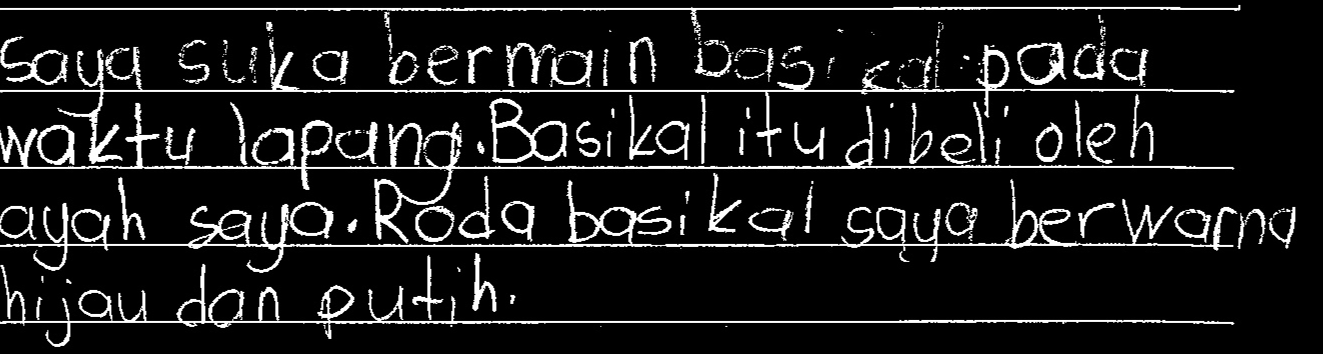 saya suka bermain basikal pada
waktu lapang. Basikal itu dibeli oleh
ayah saya. Roda basikal saya berwarna
hijau dan putih.